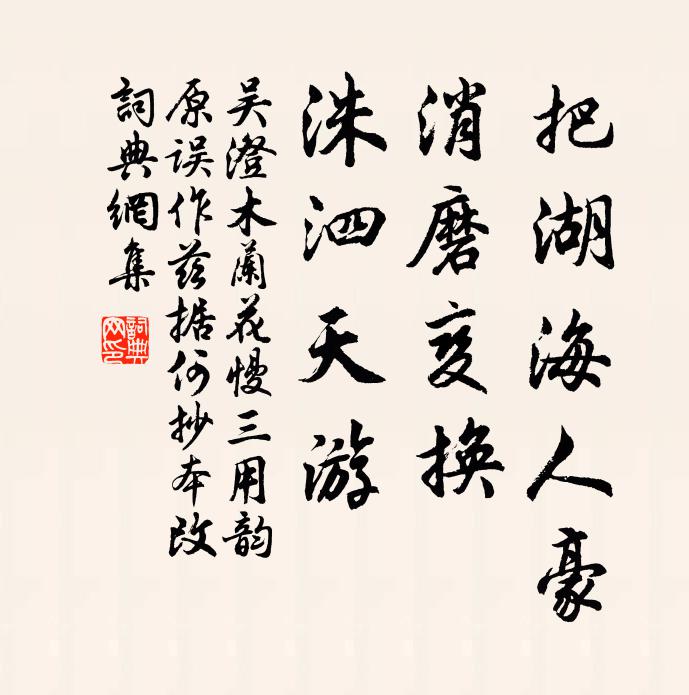 把湖海人豪
消磨变换
洙泗天游
吴澄木蘭花慢三用韵
原误作茲据何抄本改
詞典網集
詞典
网印